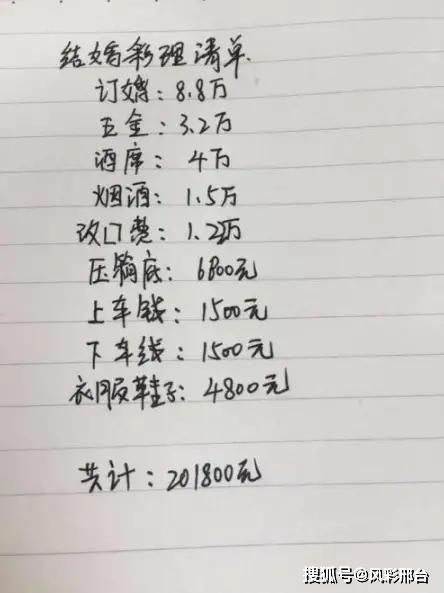 结婚彩理清单
订婚：8.8万
五金：3.2万
酒席：4万
烟酒：1.5万
改口费：1.2万
压箱底：6800元
上车钱：1500元
下车线：1500元
衣服鞋子：4800元
共计：201800元
搜狐号@风彩邢台